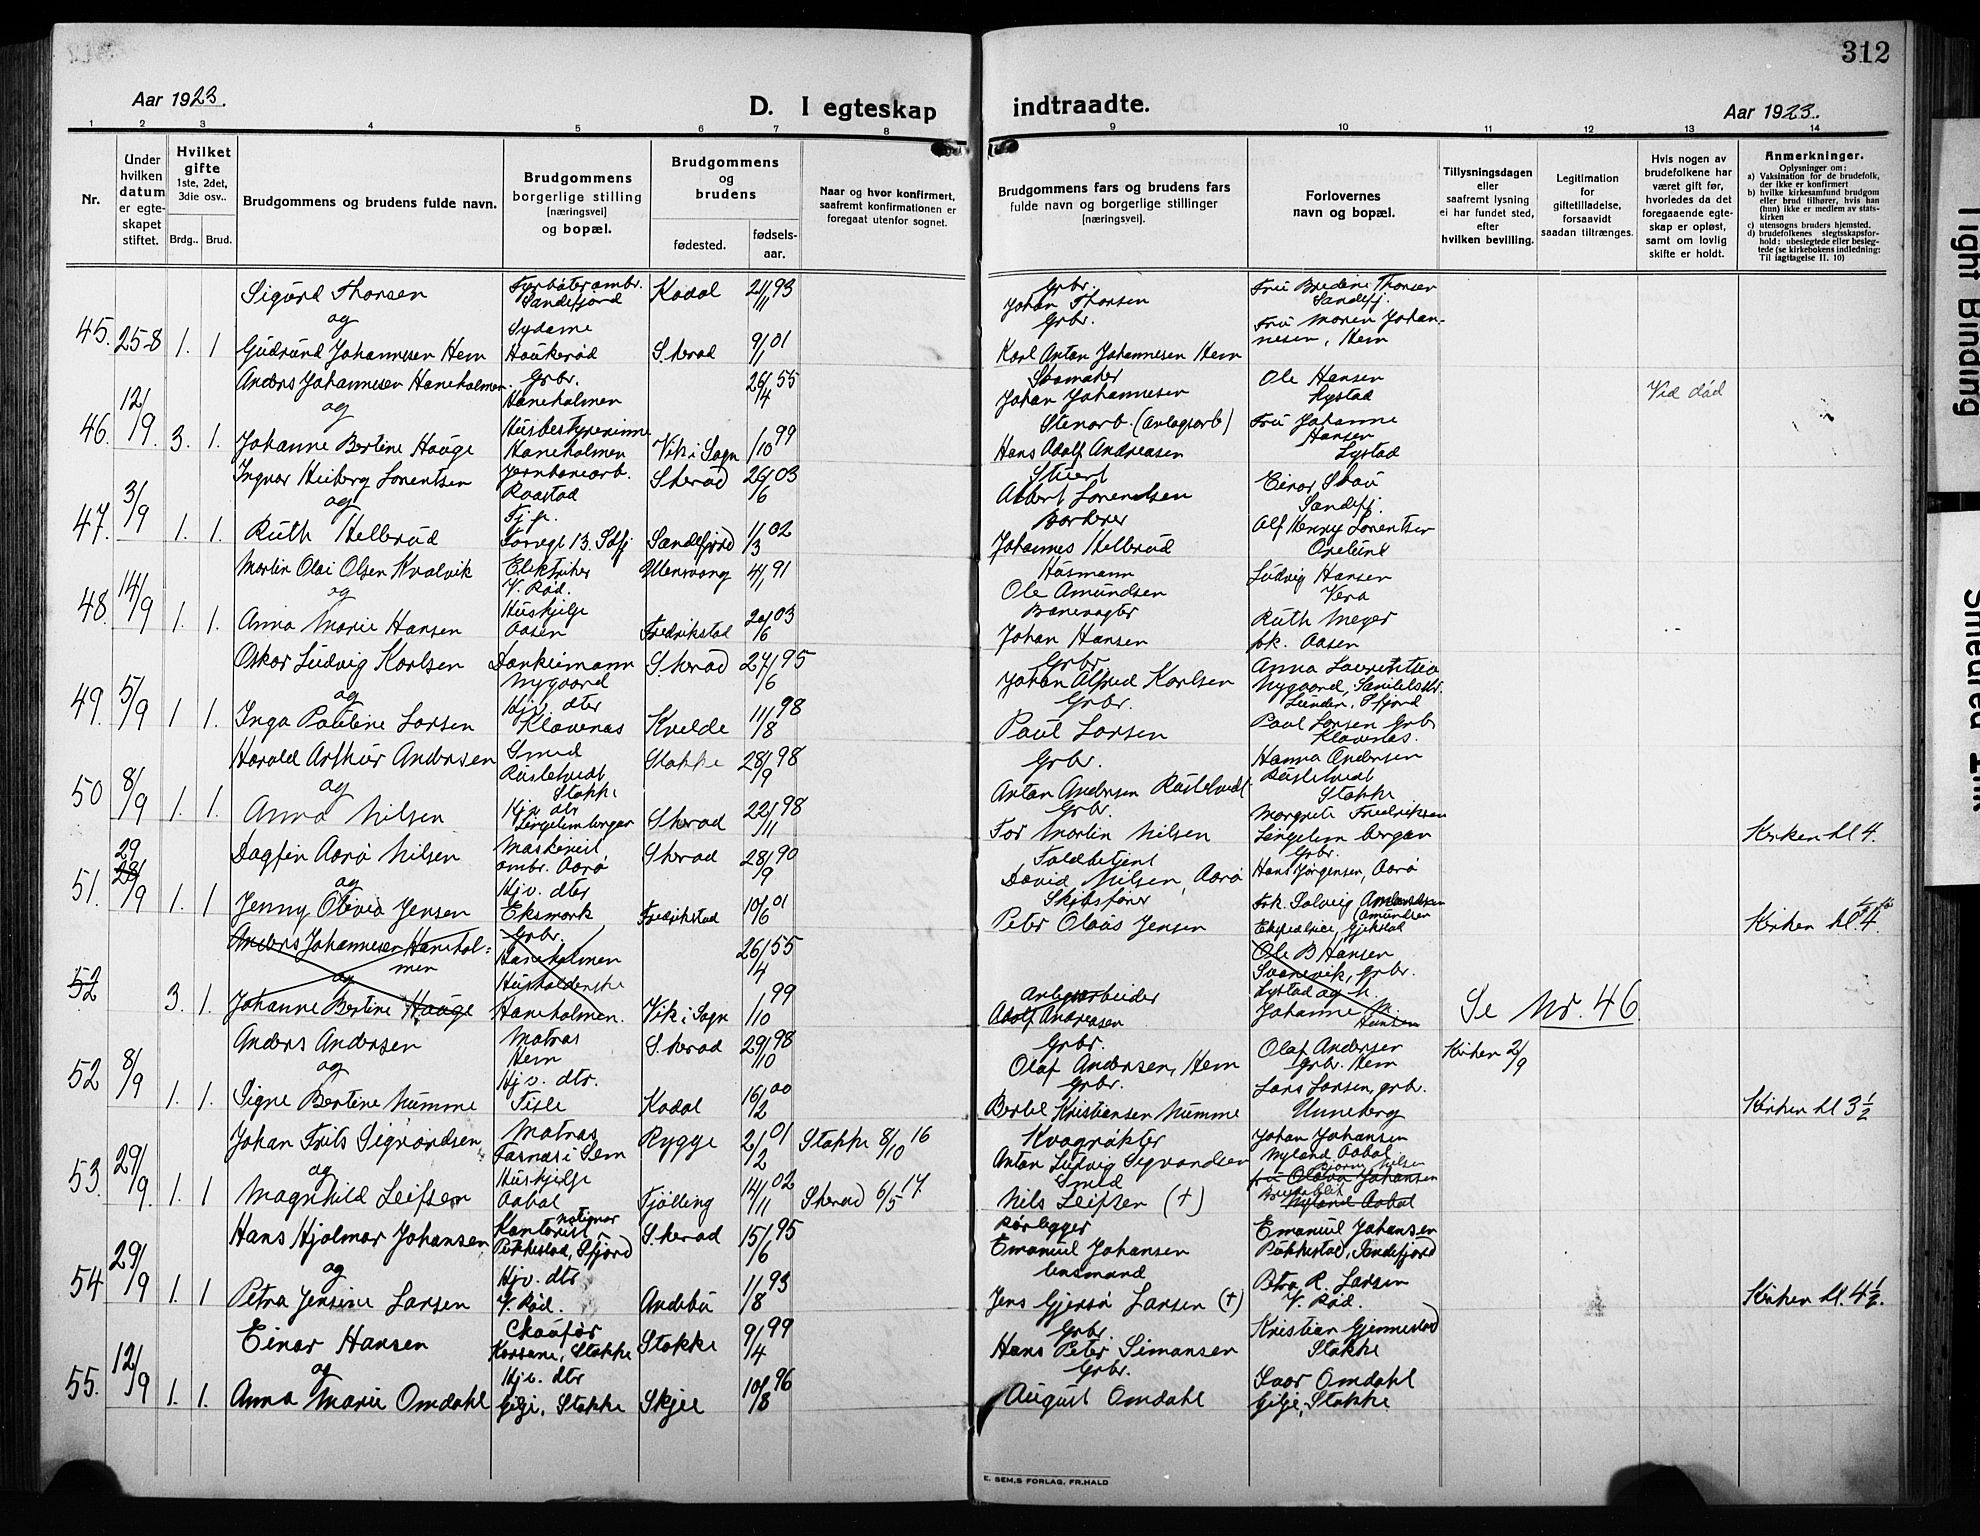 312
Aar 1923.
D. I egteskap indtraadte.
Aar 1923.
1 2 3 4 5 6 7 8 9 10 11 12 13 14
Nr.
Under hvilken datum er egte-skapet stiftet.
Hvilket gifte
1ste, 2det, 3die osv..
Brdg.. Brud.
Brudgommens og brudens fulde navn.
Brudgommens borgerlige stilling [næringsvei] og bopæl.
Brudgommens og brudens
fødested.
fødsels-aar.
Naar og hvor konfirmert, saafremt konfirmationen er foregaat utenfor sognet.
Brudgommens fars og brudens fars fulde navn og borgerlige stillinger [næringsvei].
Forlovernes navn og bopæl.
Tillysningsdagen eller saafremt lysning ei har fundet sted, efter hvilken bevilling.
Legitimation for giftetilladelse, forsaavidt saadan tiltrænges.
Hvis nogen av brudefolkene har været gift før, hvorledes da det foregaaende egte-skap er opløst, samt om lovlig skifte er holdt.
Anmerkninger.
Oplysninger om:
a) Vaksination for de brudefolk, der ikke er konfirmert
b) hvilke kirkesamfund brudgom eller brud tilhører, hvis han (hun) ikke er medlem av stats-kirken
c) utensogns bruders hjemsted.
d) brudefolkenes slegtsskapsfor-hold: ubeslegtede eller besleg-tede (se kirkebokens indledning: Til iagttagelse II. 10)
45. 25-8 1. 1
Sigurd Thorsen Sandefjord Kodal 21/11 93
og
Gudrund Johannesen Hem Sydame Haukerød S.herad 9/1 01
Grbr. Johan Thorsen
Grbr. Karl Anton Johannesen Hem
Fru Bredine Thorsen Sandefj.
Fru Maren Johan-nesen, Hem
46. 12/9. 3. 1.
Anders Johannesen Haneholmen. Grbr. Haneholmen 26/4 55
og
Johanne Bertine Hauge Husbestyrerinne Haneholmen Vik i Sogn 1/10 99
Skomaker Johan Johannesen
Stenarb. (anlagsarb) Hans Adolf Andreasen
Ole Hansen Lystad
Fru Johanne Hansen Lystad
Ved død
47. 3/9 1. 1.
Ingvar Heiberg Lorentsen Jernbanearb. Raastad S.herad 26/6 03
og
Ruth Hellerud Tj.p. Sandefjord 11/3 02
Stuert Albert Lorentsen
Johannes Hellerud
Einar Skau Sandefj.
Alf Henny Lorentsen
48. 14/9 1. 1.
Martin Olai Olsen Kvalvik Elektriker V. Rød. Ullensvang 4/1 91
og
Anna Marie Hansen Hushjelp Aasen Fredrikstad 20/6 03
Husmann Ole Amundsen
Banevogter Johan Hansen
Ludvig Hansen Vera
Ruth Meyer frk. Aasen
49. 5/9 1 1.
Oskar Ludvig Karlsen Dankeimann Nygaard S.herad 27/6 95
og
Inga Pauline Larsen Hjv. dtr Klavenæs Kvelde 11/8 98
Grbr. Johan Alfred Karlsen
Grbr. Paul Larsen
Nygaard, Lunden, Sfjord
Paul Larsen Grb. Klavenæs.
50 8/9 1. 1.
Harald Arthur Andersen Smed Rustetvedt Stokke Stokke 28/9 98
og
Anna Nilsen Hjv. dtr S.herad 22/11 98
Grbr. Anton Andersen Rustetvedt
Grbr. Tor Martin Nilsen
Hanna Andersen Rustetvedt Stokke
Margrete Fredriksen
Kirken kl 4.
51. 29 28/9 1. 1
Dagfin Aarø Nilsen Maskinist ombr. Aarø S.herad 28/9 90
og
Jenny Olivia Jensen Hjv. dtr Eksmark Fredrikstad 10/6 01
Toldbetjent David Nilsen, Aarø
Skibsfører Peter Olaus Jensen
Grbr. Hans Jørgensen, Aarø
Frk. Solveig Amundsen
Kirken kl. 4.
52 3. 1.
Anders Johannesen Haneholmen Grbr. Haneholmen 26/4 55
og
Johanne Bertine Hauge Husholderske Haneholmen. Vik i Sogn 1/10 99
Anlegsarbeider Adolf Andreasen
Ole B Hansen Svanevik, Grbr. Lystad og h. Johanne M. Hansen
Se Nr. 46.
52 8/9 1. 1.
Anders Andersen Matros Hem S.herad 29/10 98
og
Signe Bertine Numme Hjv. dtr. Kodal 16/2 00
Grbr. Olaf Andersen, Hem
Grbr. Bertel Kristiansen Numme
Olaf Andersen Grbr. Hem
Lars Larsen, grbr. Unneberg
Kirken 2/9
Kirken kl 3 1/2
53. 29/9. 1. 1
Johan Frits Sigvardsen Matros Farnæs i Sem Rygge 2/2 01 Stokke 8/10 16
og
Magnhild Leifsen Hushjelp Aabol Tjølling 14/11 02 S.herad 6/5 17.
Kvægrøkter Anton Ludvig Sigvardsen
Smed Nils Leifsen (+)
Johan Johansen Nyland Aabol
Bjarne Nilsen
fru Olava Johansen Nyland Aabol
54 29/9 1. 1
Hans Hjalmar Johansen Kontorist Pukkestad, Sfjord S.herad 15/6 95
og
Petra Jensine Larsen Hjv. dtr V. Rød. Andebu 11/8 93
Rørlegger Emanuel Johansen
lensmand Jens Gjersø Larsen (+)
Emanuel Johansen Pukkestad, Sandefjord
Petra R. Larsen V. Rød.
Kirken kl. 4 1/2.
55. 12/9 1. 1.
Einar Hansen Chaufør Stokke Stokke 9/4 99
og
Anna Marie Omdahl Hjv. dtr Gilje, Stokke Skjee 10/8 96
Grbr. Hans Peter Simonsen
Grbr. August Omdahl
Kristian Gjennestad Stokke
Ivar Omdahl Gilje, Stokke
E. SEM,S FORLAG, FR.HALD
Tight Binding
Smeared Ink